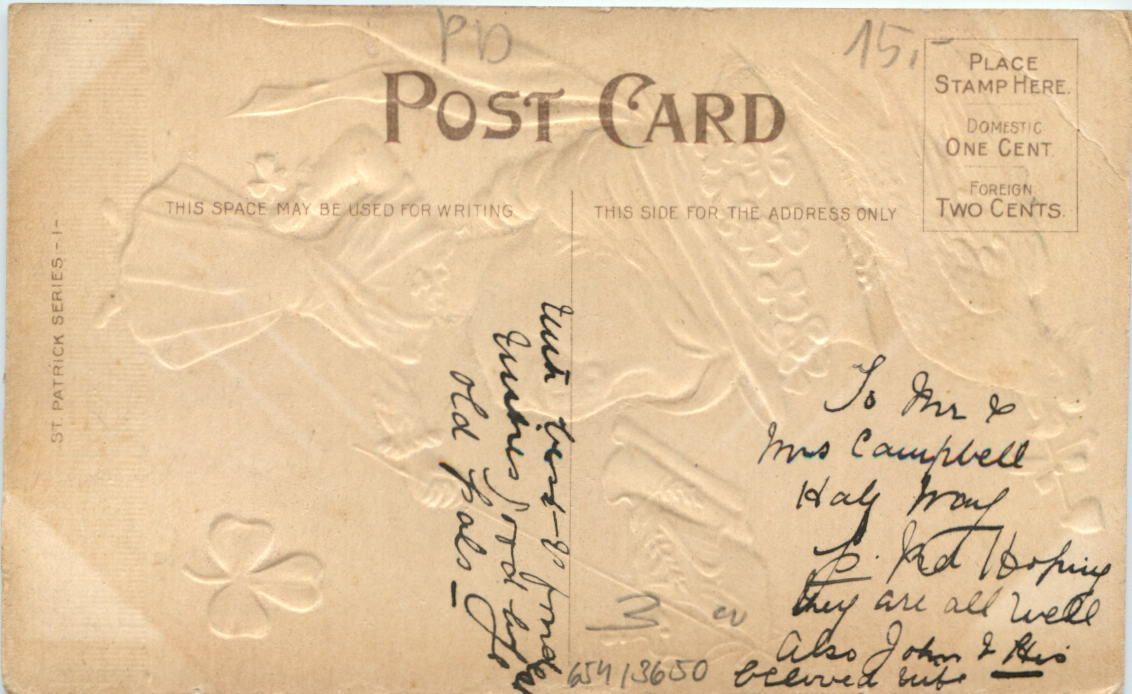 PD
15,-
POST CARD
PLACE
STAMP HERE.
DOMESTIC
ONE CENT.
FOREIGN
TWO CENTS.
THIS SPACE MAY BE USED FOR WRITING
THIS SIDE FOR THE ADDRESS ONLY
ST. PATRICK SERIES-1-
With best &
wishes good
old pals
To Mr &
Mrs Campbell
Half Way
Rd Hoping
they are all well
Also John & His
beloved wife
65413650